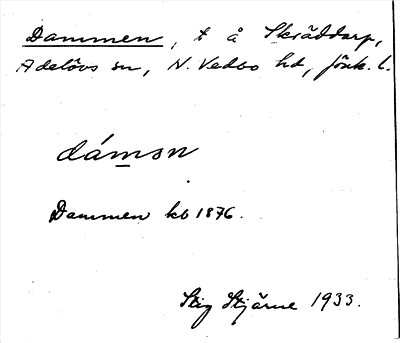 Dammen, t å Skräddarp,
Adelövs sn, N. Vedbo hd, Jönk. l.
dámsn
Dammen kb 1876.
Stig Stjärne 1933.